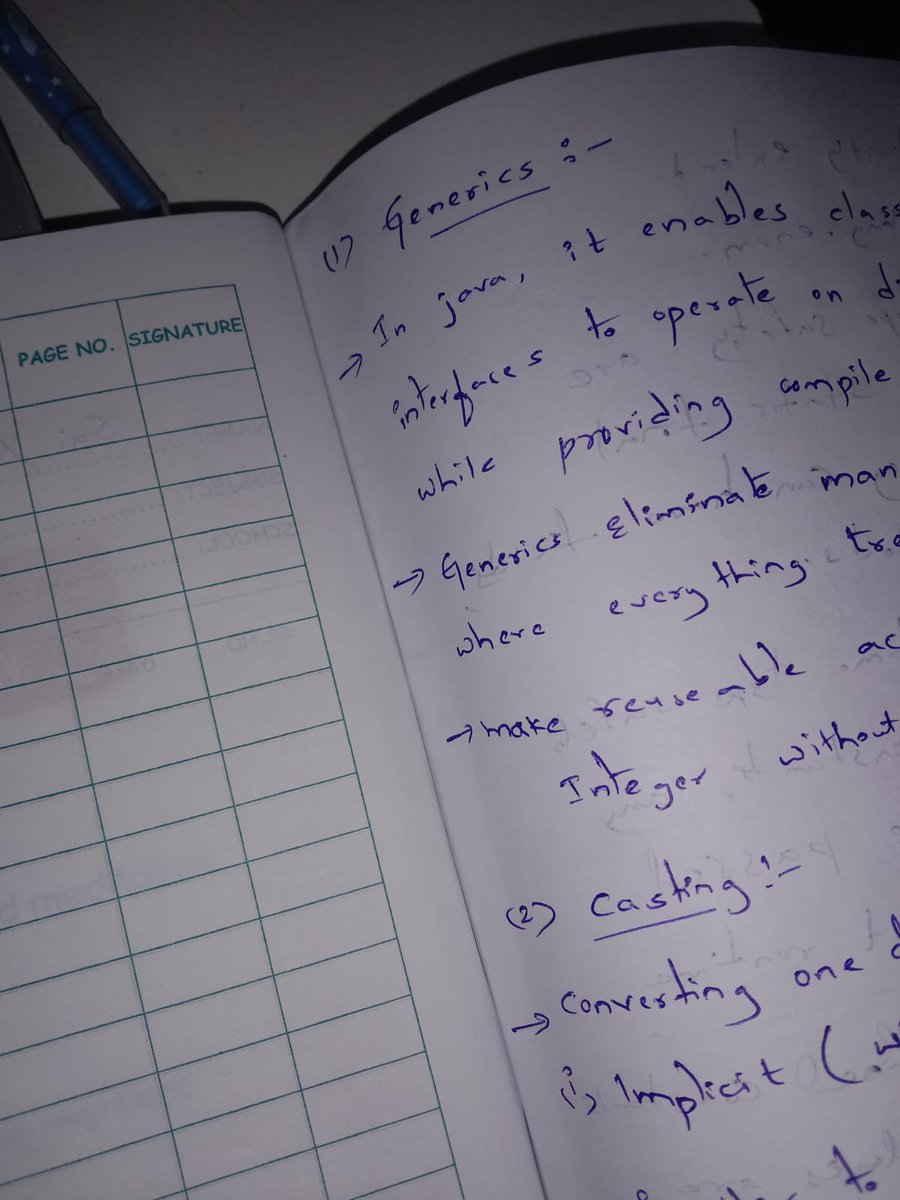 PAGE NO. SIGNATURE
(1) Generics :-
→ In java, it enables class
interfaces to operate on
while providing compile
→ Generics Eliminate
where everything
→ make reuseable
Integer without
(2) Casting :-
→ Converting one
i) Implicit (
to